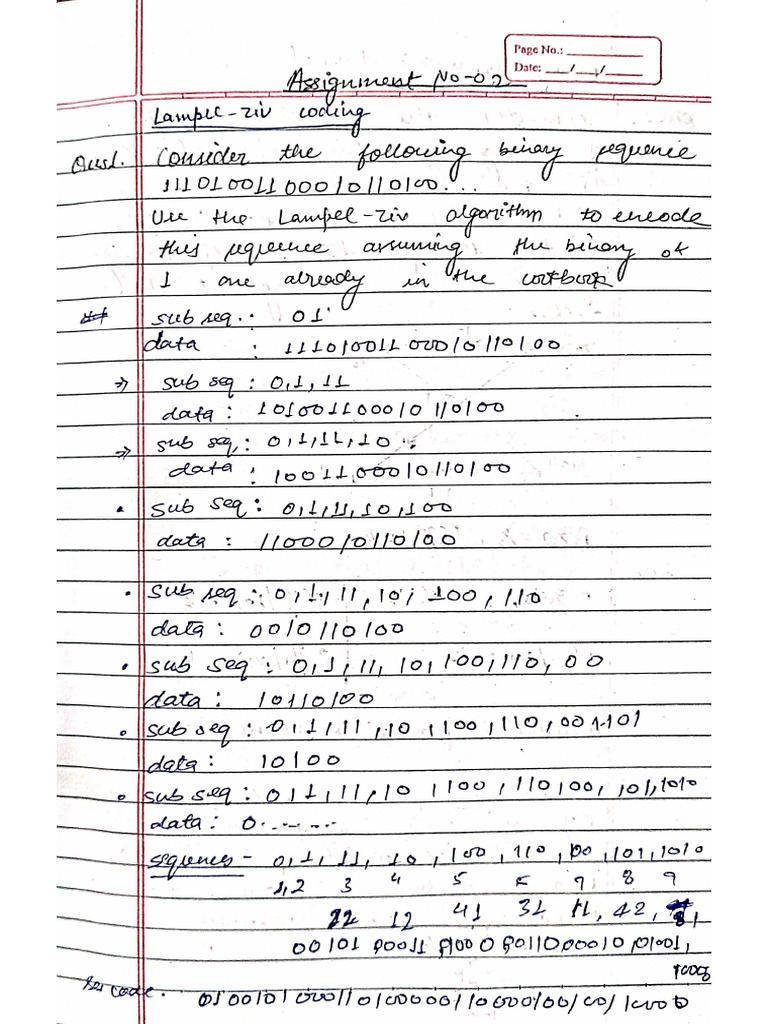 Page No.:
Date:
Assignment No-02
Lampel-ziv coding
Ques1. Consider the following binary sequence
11101001100010110100....
Use the Lampel-ziv algorithm to encode
this sequence assuming the binary of
1 one already in the
sub seq.: 01
data : 11101001100010110100
=> sub seq : 0,1,11
data : 101001100010110100
=> sub seq: 0,1,11,10
data : 1001100010110100
sub seq : 0,1,11,10,100
data : 1100010110100
. sub seq : 0,1,11,10, 100, 110
data : 0010110100
. sub seq : 0,1,11,10,100,110,00
data : 10110100
. sub seq : 0,1,11,10,100,110,00,101
data : 10100
. sub seq : 0,1,11,10 100,110,00, 101,1010
data : 0........
sequences- 0,1,11,10,100,110,00,101,1010
1,2 3 4 5 6 7 8 9
22 12 41 31 11, 42, 81